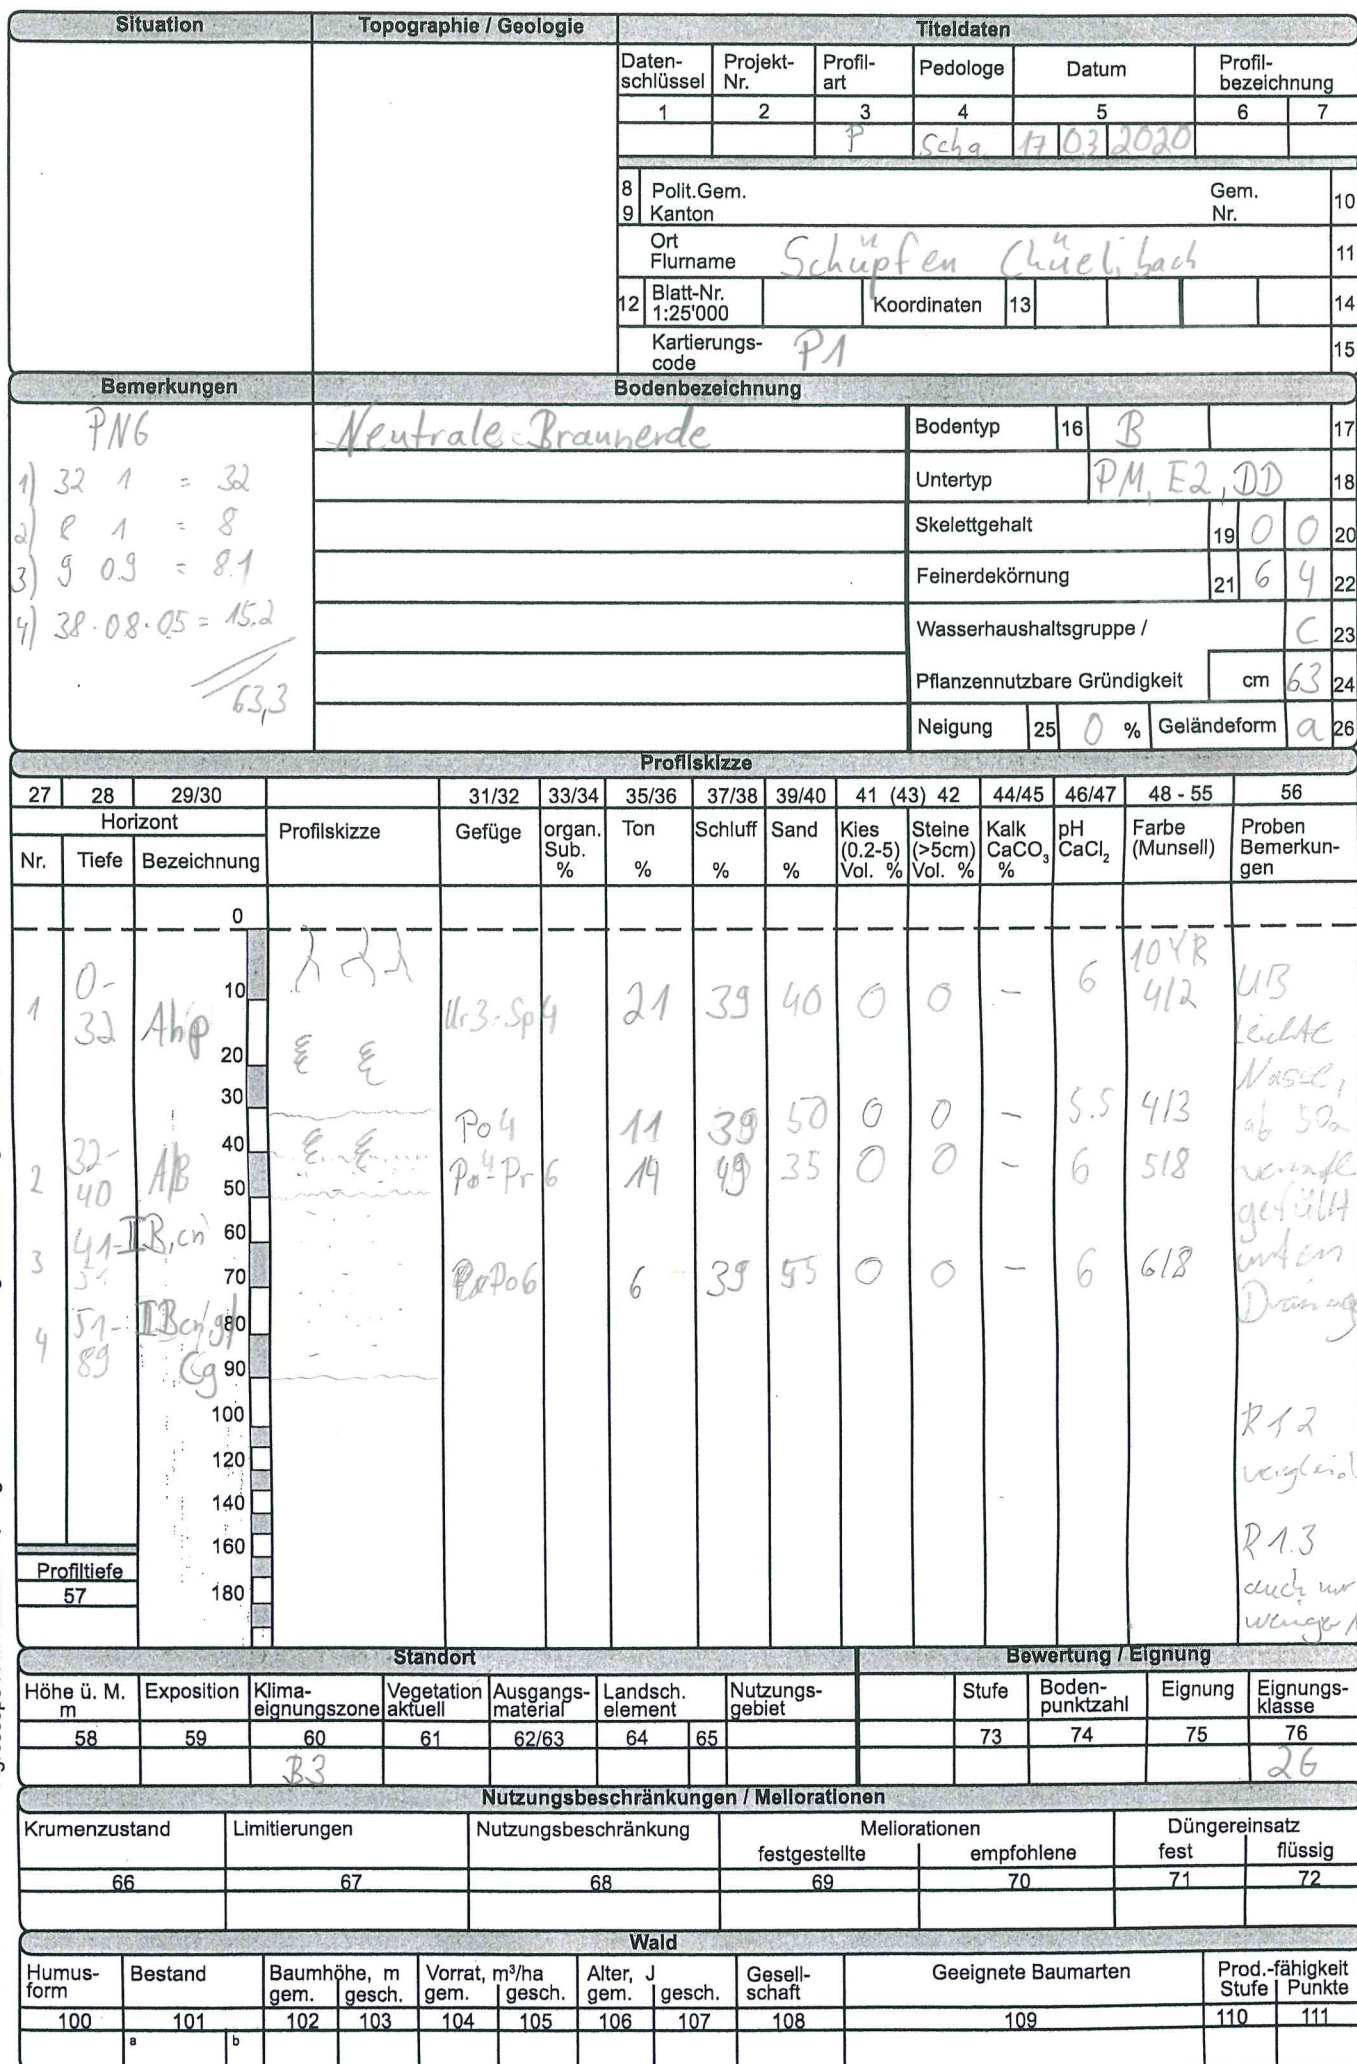 Situation
Topographie / Geologie
Titeldaten
Daten-schlüssel Projekt-Nr. Profil-art Pedologe Datum Profil-bezeichnung
1 2 3 4 5 6 7
P Scha 17 03 2020
8 Polit.Gem. Gem. 10
9 Kanton Nr.
Ort
Flurname Schüpfen Chüelibach 11
12 Blatt-Nr. 1:25'000 Koordinaten 13 14
Kartierungs-code P1 15
Bemerkungen
Bodenbezeichnung
PNG
1) 32 1 = 32
2) 8 1 = 8
3) 9 0.9 = 8.1
4) 38 · 08 · 05 = 15.2
63,3
Neutrale Braunerde
Bodentyp 16 B 17
Untertyp PM, E2, DD 18
Skelettgehalt 19 0 0 20
Feinerdekörnung 21 6 4 22
Wasserhaushaltsgruppe / C 23
Pflanzennutzbare Gründigkeit cm 63 24
Neigung 25 0 % Geländeform a 26
Profilskizze
27 28 29/30 31/32 33/34 35/36 37/38 39/40 41 (43) 42 44/45 46/47 48 - 55 56
Horizont
Nr. Tiefe Bezeichnung Profilskizze Gefüge organ. Sub. % Ton % Schluff % Sand % Kies (0.2-5) Vol. % Steine (>5cm) Vol. % Kalk CaCO3 % pH CaCl2 Farbe (Munsell) Proben Bemerkun-gen
0
10
20
30
40
50
60
70
80
90
100
120
140
160
180
1 0-32 Ahp Kr3-Sp4 21 39 40 0 0 - 6 10YR 4/2
2 32-40 A/B Po4 11 39 50 0 0 - 5.5 4/3
3 41-51 IB,cn Po4-Pr6 14 49 35 0 0 - 6 5/8
4 51-89 IBcn/g/Cg Po6 6 39 55 0 0 - 6 6/8
UB
leichte
ab 50
gefüllt
unten
R 1.2
R 1.3
auch nur
weniger
Profiltiefe
57
Standort
Bewertung / Eignung
Höhe ü. M. m Exposition Klima-eignungszone Vegetation aktuell Ausgangs-material Landsch. element Nutzungs-gebiet Stufe Boden-punktzahl Eignung Eignungs-klasse
58 59 60 61 62/63 64 65 73 74 75 76
B3 26
Nutzungsbeschränkungen / Meliorationen
Krumenzustand Limitierungen Nutzungsbeschränkung Meliorationen Düngereinsatz
festgestellte empfohlene fest flüssig
66 67 68 69 70 71 72
Wald
Humus-form Bestand Baumhöhe, m gem. gesch. Vorrat, m³/ha gem. gesch. Alter, J gem. gesch. Gesell-schaft Geeignete Baumarten Prod.-fähigkeit Stufe Punkte
100 101 102 103 104 105 106 107 108 109 110 111
a b